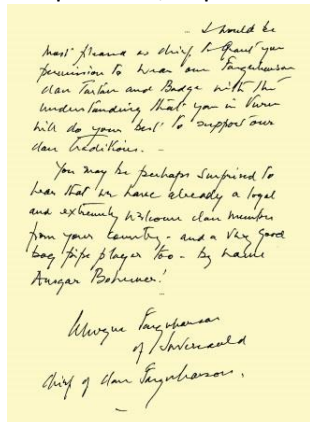 - I should be
most pleased as chief to grant you
permission to wear our Farquharson
clan Tartan and Badge with the
understanding that you in turn
will do your best to support our
clan traditions. -
You may be perhaps surprised to
hear that we have already a loyal
and extremely welcome clan member
from your country - and a very good
bag pipe player too - by name
Ansgar Bohmer!
Farquharson
of Invercauld
Chief of Clan Farquharson.